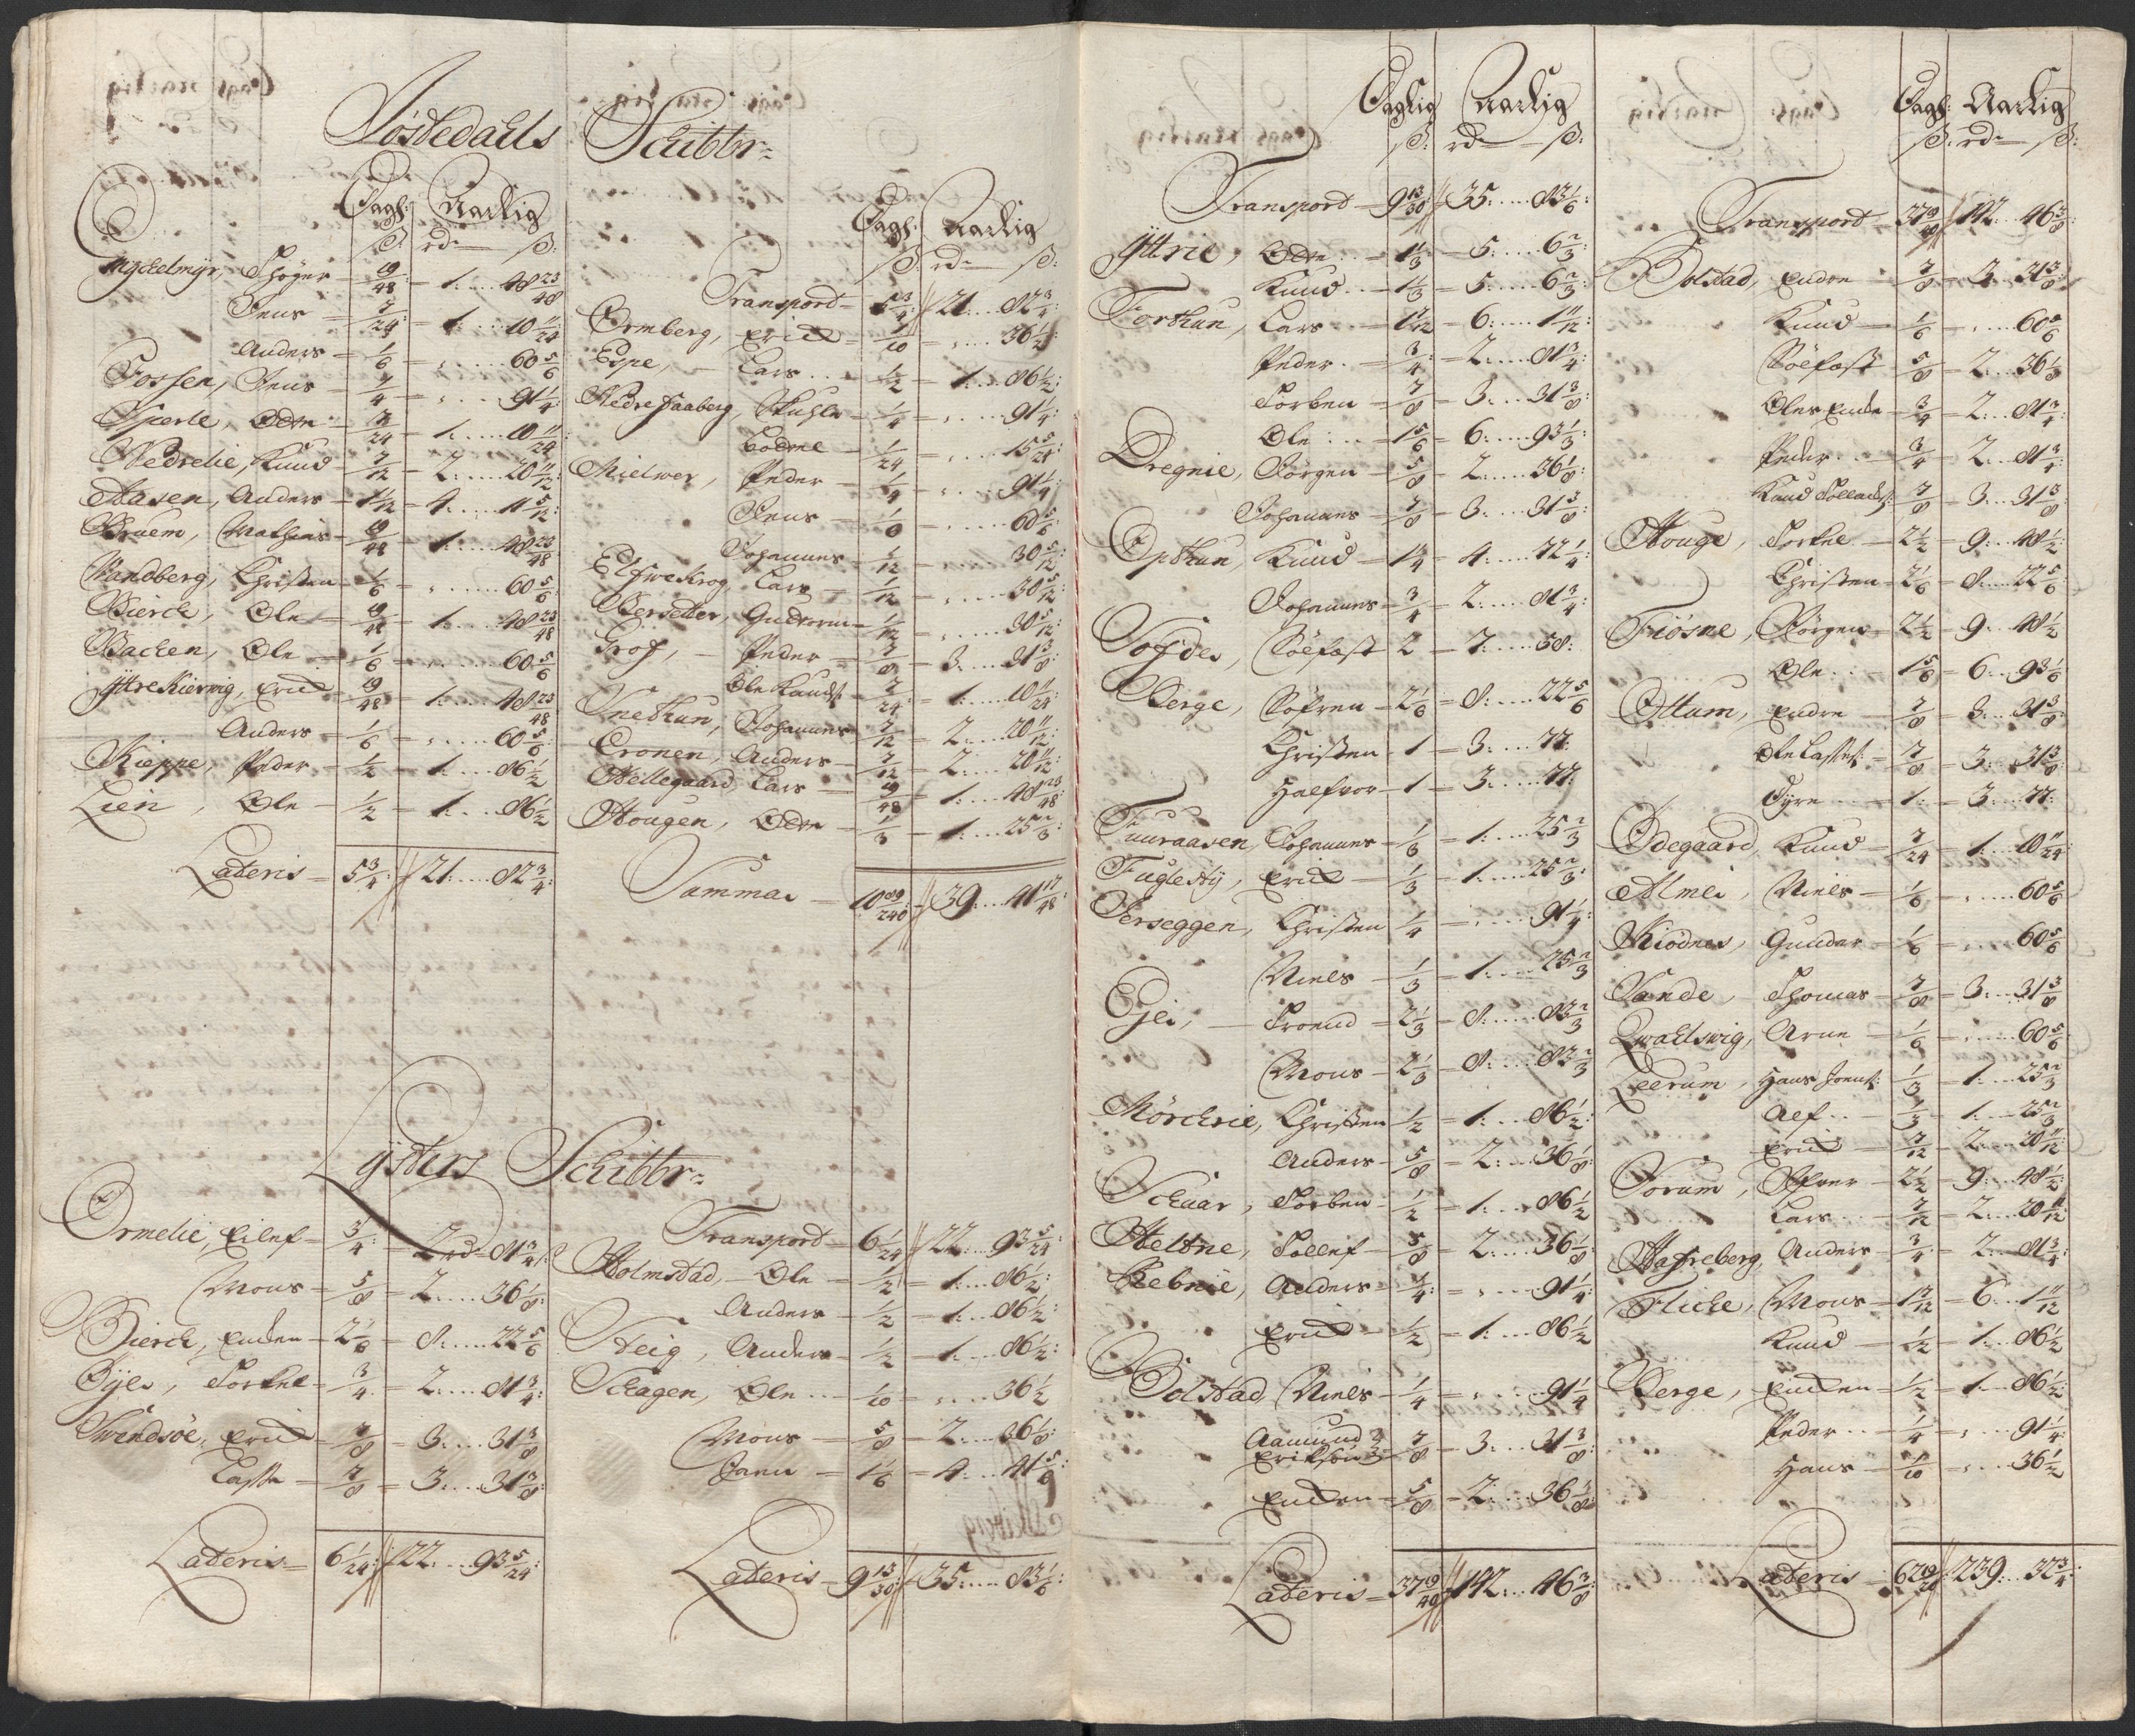 Jostedahls Schibbr:
Dagl: Aarlig
ß: rd. ß:
Myckelmyr, Thøger 19/48 1 .. 48 23/48
Jens 7/24 1 .. 10 11/24
Anders 1/6 .. 60 5/6
Fossen, Jens 1/4 .. 91 1/4
Sperle, Oddn 7/24 1 .. 10 11/24
Nedrelie, Knud 7/12 2 .. 20 11/12
Aasen, Anders 1 1/12 4 .. 11 5/12
Bruem, Mathias 19/48 1 .. 48 23/48
Randberg, Christen 1/6 .. 60 5/6
Bierck, Ole 19/48 1 .. 48 23/48
Backen, Ole 1/6 .. 60 5/6
Yttre Kierwig, Erick 19/48 1 .. 48 23/48
Anders 1/6 .. 60 5/6
Kieppe, Peder 1/2 1 .. 86 1/2
Lien, Ole 1/2 1 .. 86 1/2
Lateris 5 3/4: 21 .. 82 3/4:
Dagl: Aarlig
ß: rd. ß:
Transport 5 3/4: 21 .. 82 3/4:
Ormberg, Erick 1/10 .. 36 1/2
Espe, Lars 1/2 1 .. 86 1/2:
Nedre Haaberg, 1/4 .. 91 1/4:
1/24 .. 15 5/24:
Mielwer, Peder 1/4 .. 91 1/4:
Jens 1/6 .. 60 5/6
Johannes 1/12 .. 30 5/12
Lars 1/12 .. 30 5/12
Bersetter, Gudtorm 1/12 .. 30 5/12:
Grof, Peder 7/8 3 .. 31 3/8:
Ole Knuds: 7/24 1 .. 10 11/24
Snethun, Johannes 7/12 2 .. 20 11/12:
Cronen, Anders 7/12 2 .. 20 11/12:
Hellegaard, Lars 19/48 1 .. 48 23/48:
Hougen, Oddn 1/3 1 .. 25 2/3:
Summa 10 89/240 39 .. 41 17/48:
Lysters Schibbr:
Ormelie, Eilef 3/4: 2 rd 81 3/4 ß
Mons 5/8 2 .. 36 1/8:
Bierck, Enden 2 1/6 8 .. 22 5/6
Øjes, Torkel 3/4 2 .. 81 3/4:
Swendsøe, Erick 7/8 3 .. 31 3/8
Lasse 7/8 3 .. 31 3/8:
Lateris 6 1/24: 22 .. 93 5/24:
Transport 6 1/24 22 .. 93 5/24:
Holmstad, Ole 1/2 1 .. 86 1/2:
Anders 1/2 1 .. 86 1/2:
Steig, Anders 1/2 1 .. 86 1/2:
Schagen, Ole 1/10 .. 36 1/2
Mons 5/8 2 .. 36 1/8:
1 1/6 4 .. 41 5/6
Lateris 9 13/30 35 .. 83 1/6:
Daglig Aarlig
ß: rd. ß:
Transport 9 13/30 35 .. 83 1/6
Yttrie, Oddn 1 1/3 5 .. 6 2/3:
Knud 1 1/3 5 .. 6 2/3:
Forthun, Lars 1 7/12 6 .. 1 11/12:
Peder 3/4: 2 .. 81 3/4:
Torben 7/8 3 .. 31 3/8:
Ole 1 5/6 6 .. 93 1/3:
Dregnie, Jørgen 5/8 2 .. 36 1/8:
Johannes 7/8 3 .. 31 3/8:
Opthun, Knud 1 1/4 4 .. 72 1/4
Johannes 3/4 2 .. 81 3/4:
Søefast 2 7 .. 58:
Berge, Søfren 2 1/6 8 .. 22 5/6
Christen 1 3 .. 77:
Halfvor 1 3 .. 77:
Fuuraasen, Johannes 1/3 1 .. 25 2/3
Fuglesty, Erick 1/3 1 .. 25 2/3:
Jerseggen, Christen 1/4 .. 91 1/4:
Niels 1/3 1 .. 25 2/3
Øjes, Troend 2 1/3 8 .. 83 2/3
Mons 2 1/3 8 .. 83 2/3
Mørchrie, Christen 1/2 1 .. 86 1/2:
Anders 5/8 2 .. 36 1/8:
Schaar, Torben 1/2 1 .. 86 1/2
Heltne, Tollef 5/8 2 .. 36 1/8:
Rebnie, Anders 1/4: .. 91 1/4:
Erick 1/2 1 .. 86 1/2
Bolstad, Niels 1/4 .. 91 1/4
Aamund Erikson 7/8 3 .. 31 3/8:
Enden 5/8 2 .. 36 1/8:
Lateris 37 19/40 142 .. 46 3/8:
Dagl: Aarlig
ß: rd. ß:
Transport 37 19/40 142 .. 46 3/8:
Bolstad, Endre 7/8 3 .. 31 3/8:
Knud 1/6 .. 60 5/6
Søefast 5/8 2 .. 36 1/8
Oles Enke 3/4 2 .. 81 3/4
Peder 3/4 2 .. 81 3/4:
Knud Tollacks: 7/8 3 .. 31 3/8
Houge, Torkel 2 1/2 9 .. 48 1/2:
Christen 2 1/6 8 .. 22 5/6
Fiøsne, Jørgen 2 1/2 9 .. 48 1/2
Ole 1 5/6 6 .. 93 1/6
Ottum, Endre 7/8 3 .. 31 3/8
Ole Lasses: 7/8 3 .. 31 3/8:
Syre 1: 3 .. 77:
Ødegaard, Knud 7/24 1 .. 10 11/24:
Alme, Niels 1/6 .. 60 5/6
Kiødnes, Gunder 1/6 .. 60 5/6
Sande, Thomas 7/8 3 .. 31 3/8
Qwalswig, Arne 1/6 .. 60 5/6:
Leerum, Hans Joens: 1/3 1 .. 25 2/3
Alf 1/3 1 .. 25 2/3
Erick 7/12 2 .. 20 11/12
Sorum, 2 1/2 9 .. 48 1/2:
Lars 7/12 2 .. 20 11/12:
Hafreberg, Anders 3/4 2 .. 81 3/4:
Fliche, Mons 1 7/12 6 .. 1 11/12
Knud 1/2 1 .. 86 1/2
Berge, Enden 1/2 1 .. 86 1/2
Peder 1/4 .. 91 1/4:
Hans 1/10 .. 36 1/2
Lateris 62 19/20 239 .. 32 3/4: